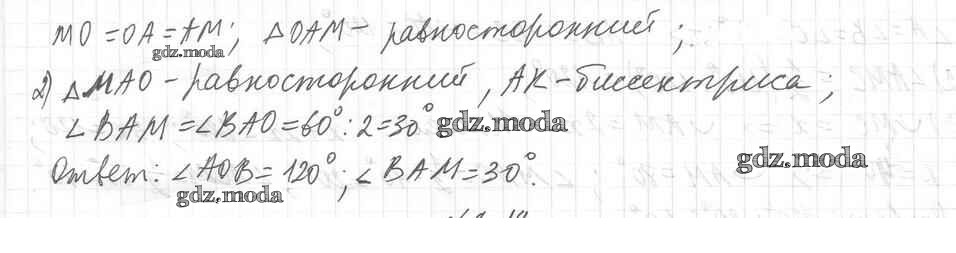 MO = OA = AM; △OAM - равносторонний;
gdz.moda
2) △MAO - равносторонний, AK - биссектриса;
∠BAM = ∠BAO = 60° : 2 = 30°
gdz.moda
gdz.moda
Ответ: ∠AOB = 120°; ∠BAM = 30°.
gdz.moda